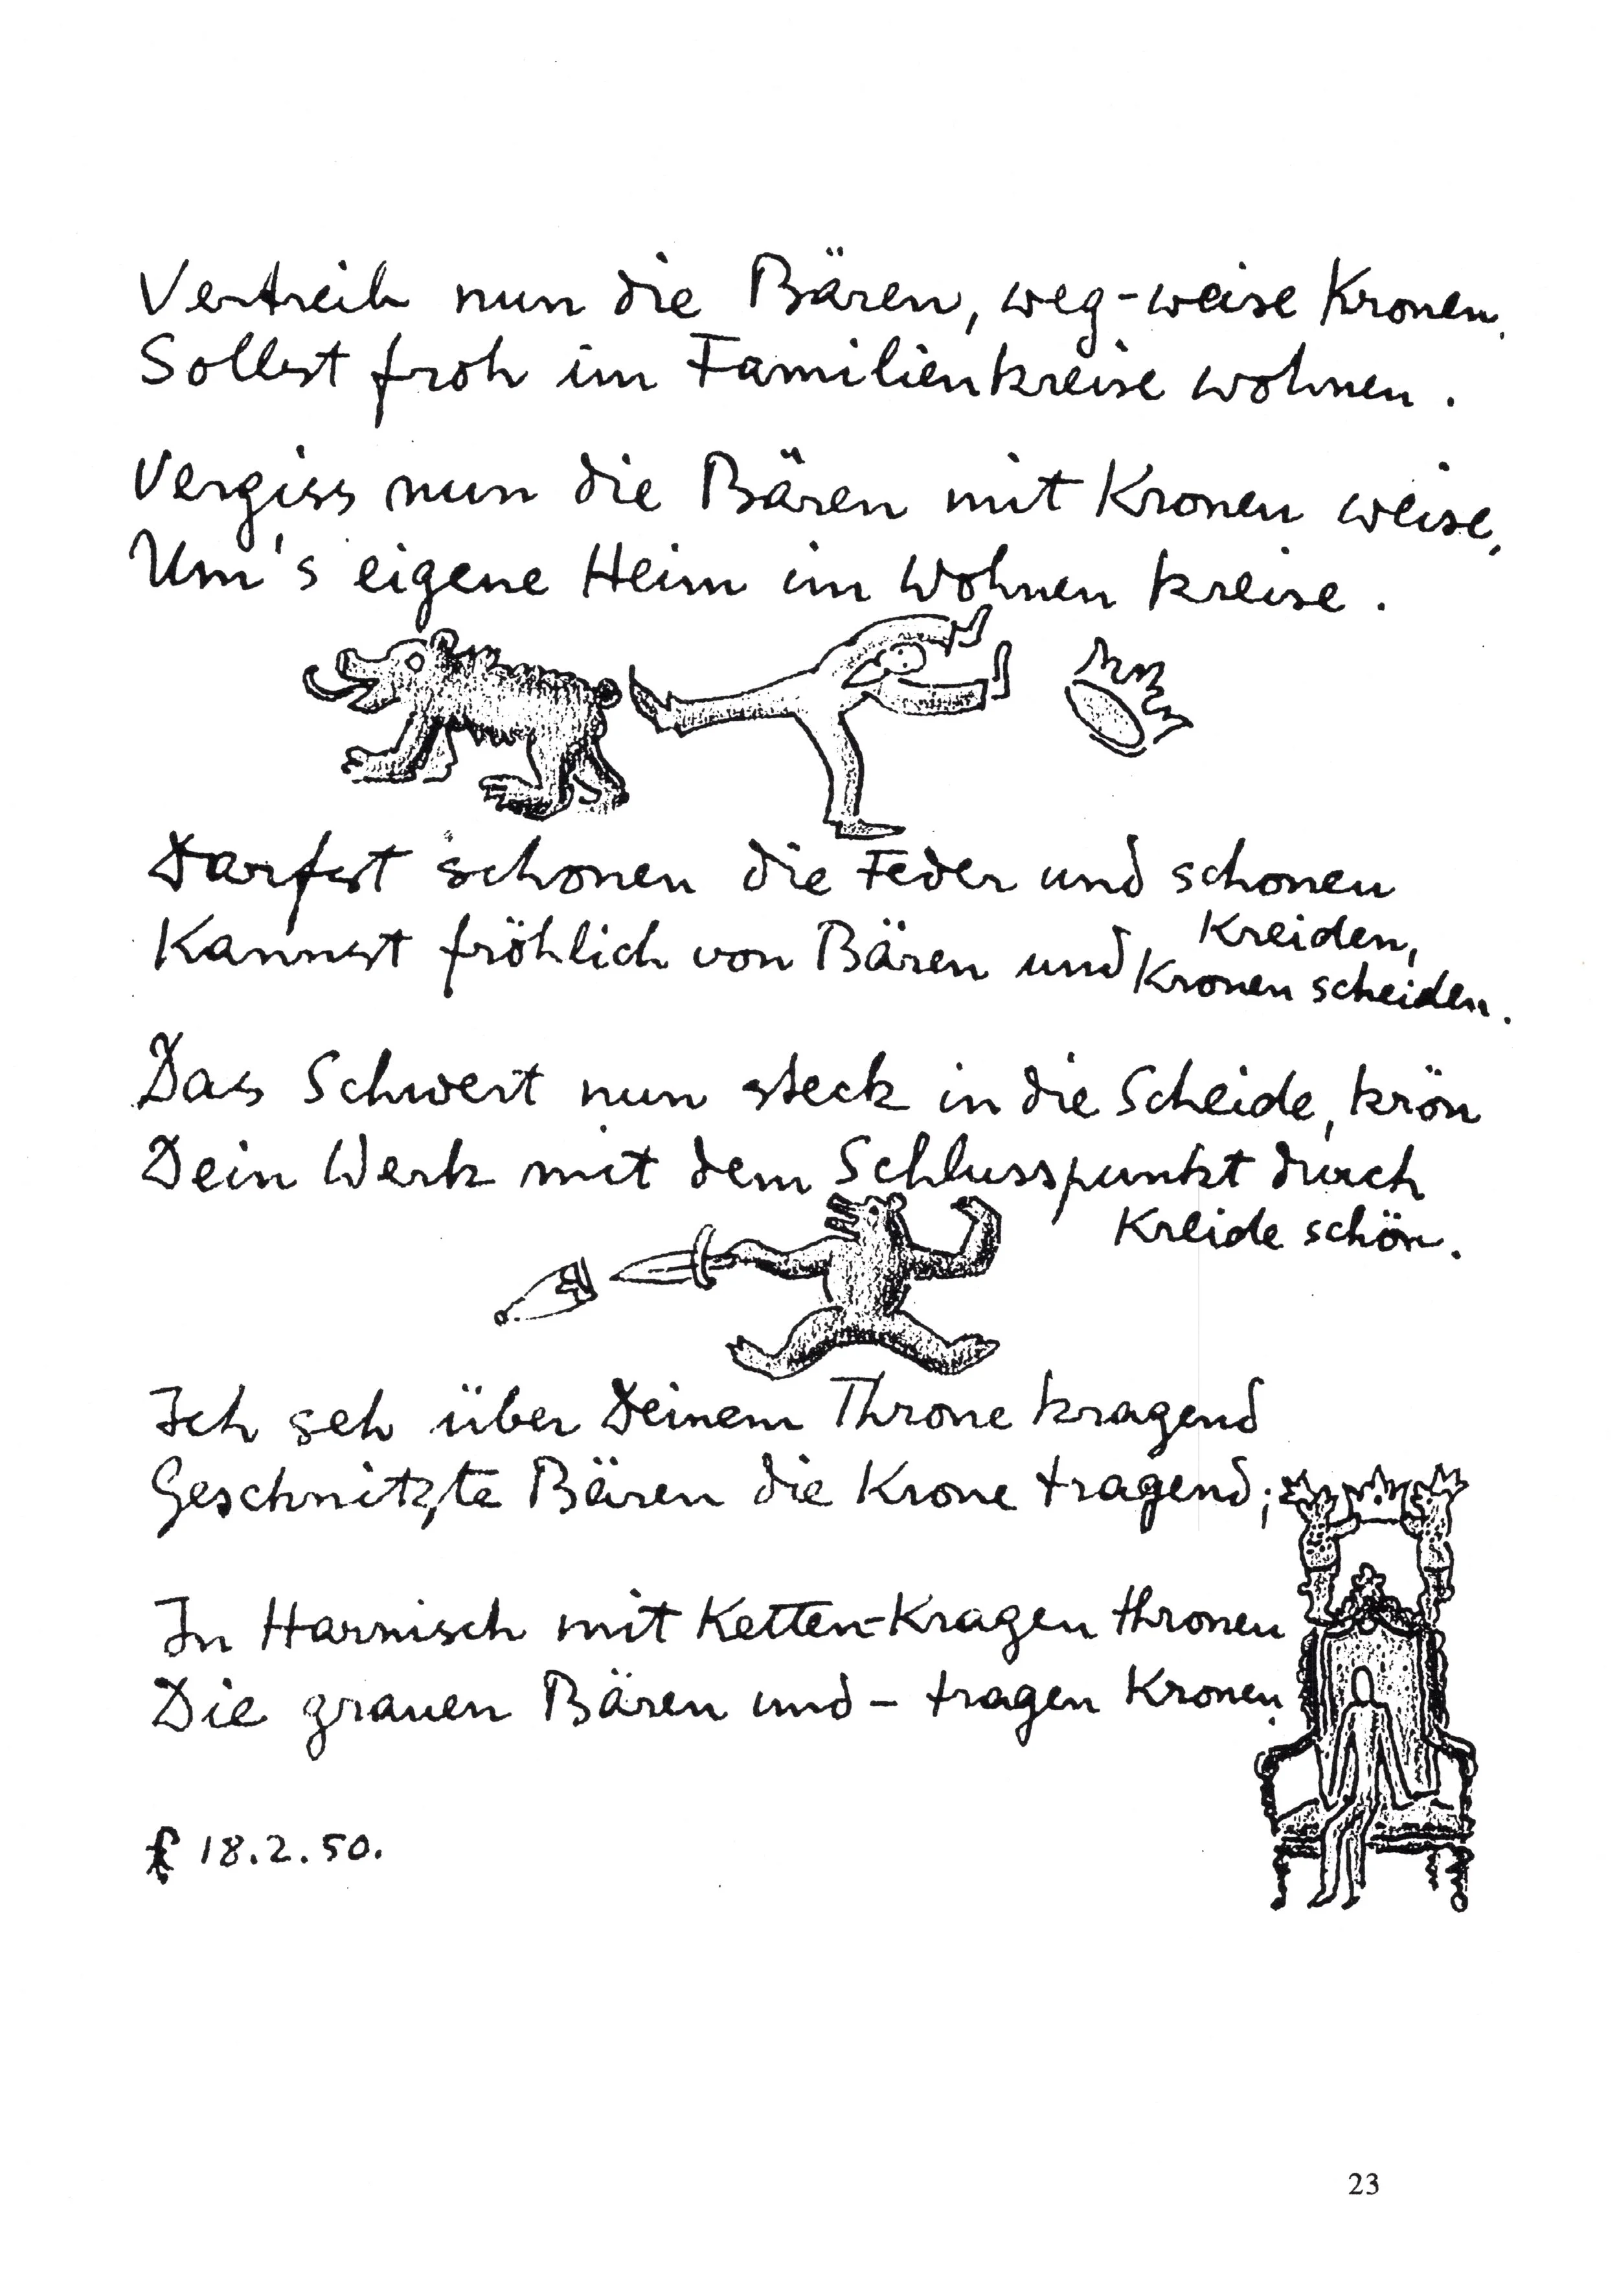 Vertreib nun die Bären, weg-weise Kronen.
Sollst froh im Familienkreise wohnen.
Vergiss nun die Bären mit Kronen weise,
Um's eigene Heim im Wohnen kreise.
Darfst schonen die Feder und schonen
Kreiden,
Kannst fröhlich von Bären und Kronen scheiden.
Das Schwert nun steck in die Scheide, krön
Dein Werk mit dem Schlusspunkt durch
Kreide schön.
Ich seh über Deinem Throne kragend
Geschnitzte Bären die Krone tragend;
In Harnisch mit Ketten-Kragen thronen
Die grauen Bären und - tragen Kronen.
18.2.50.
23